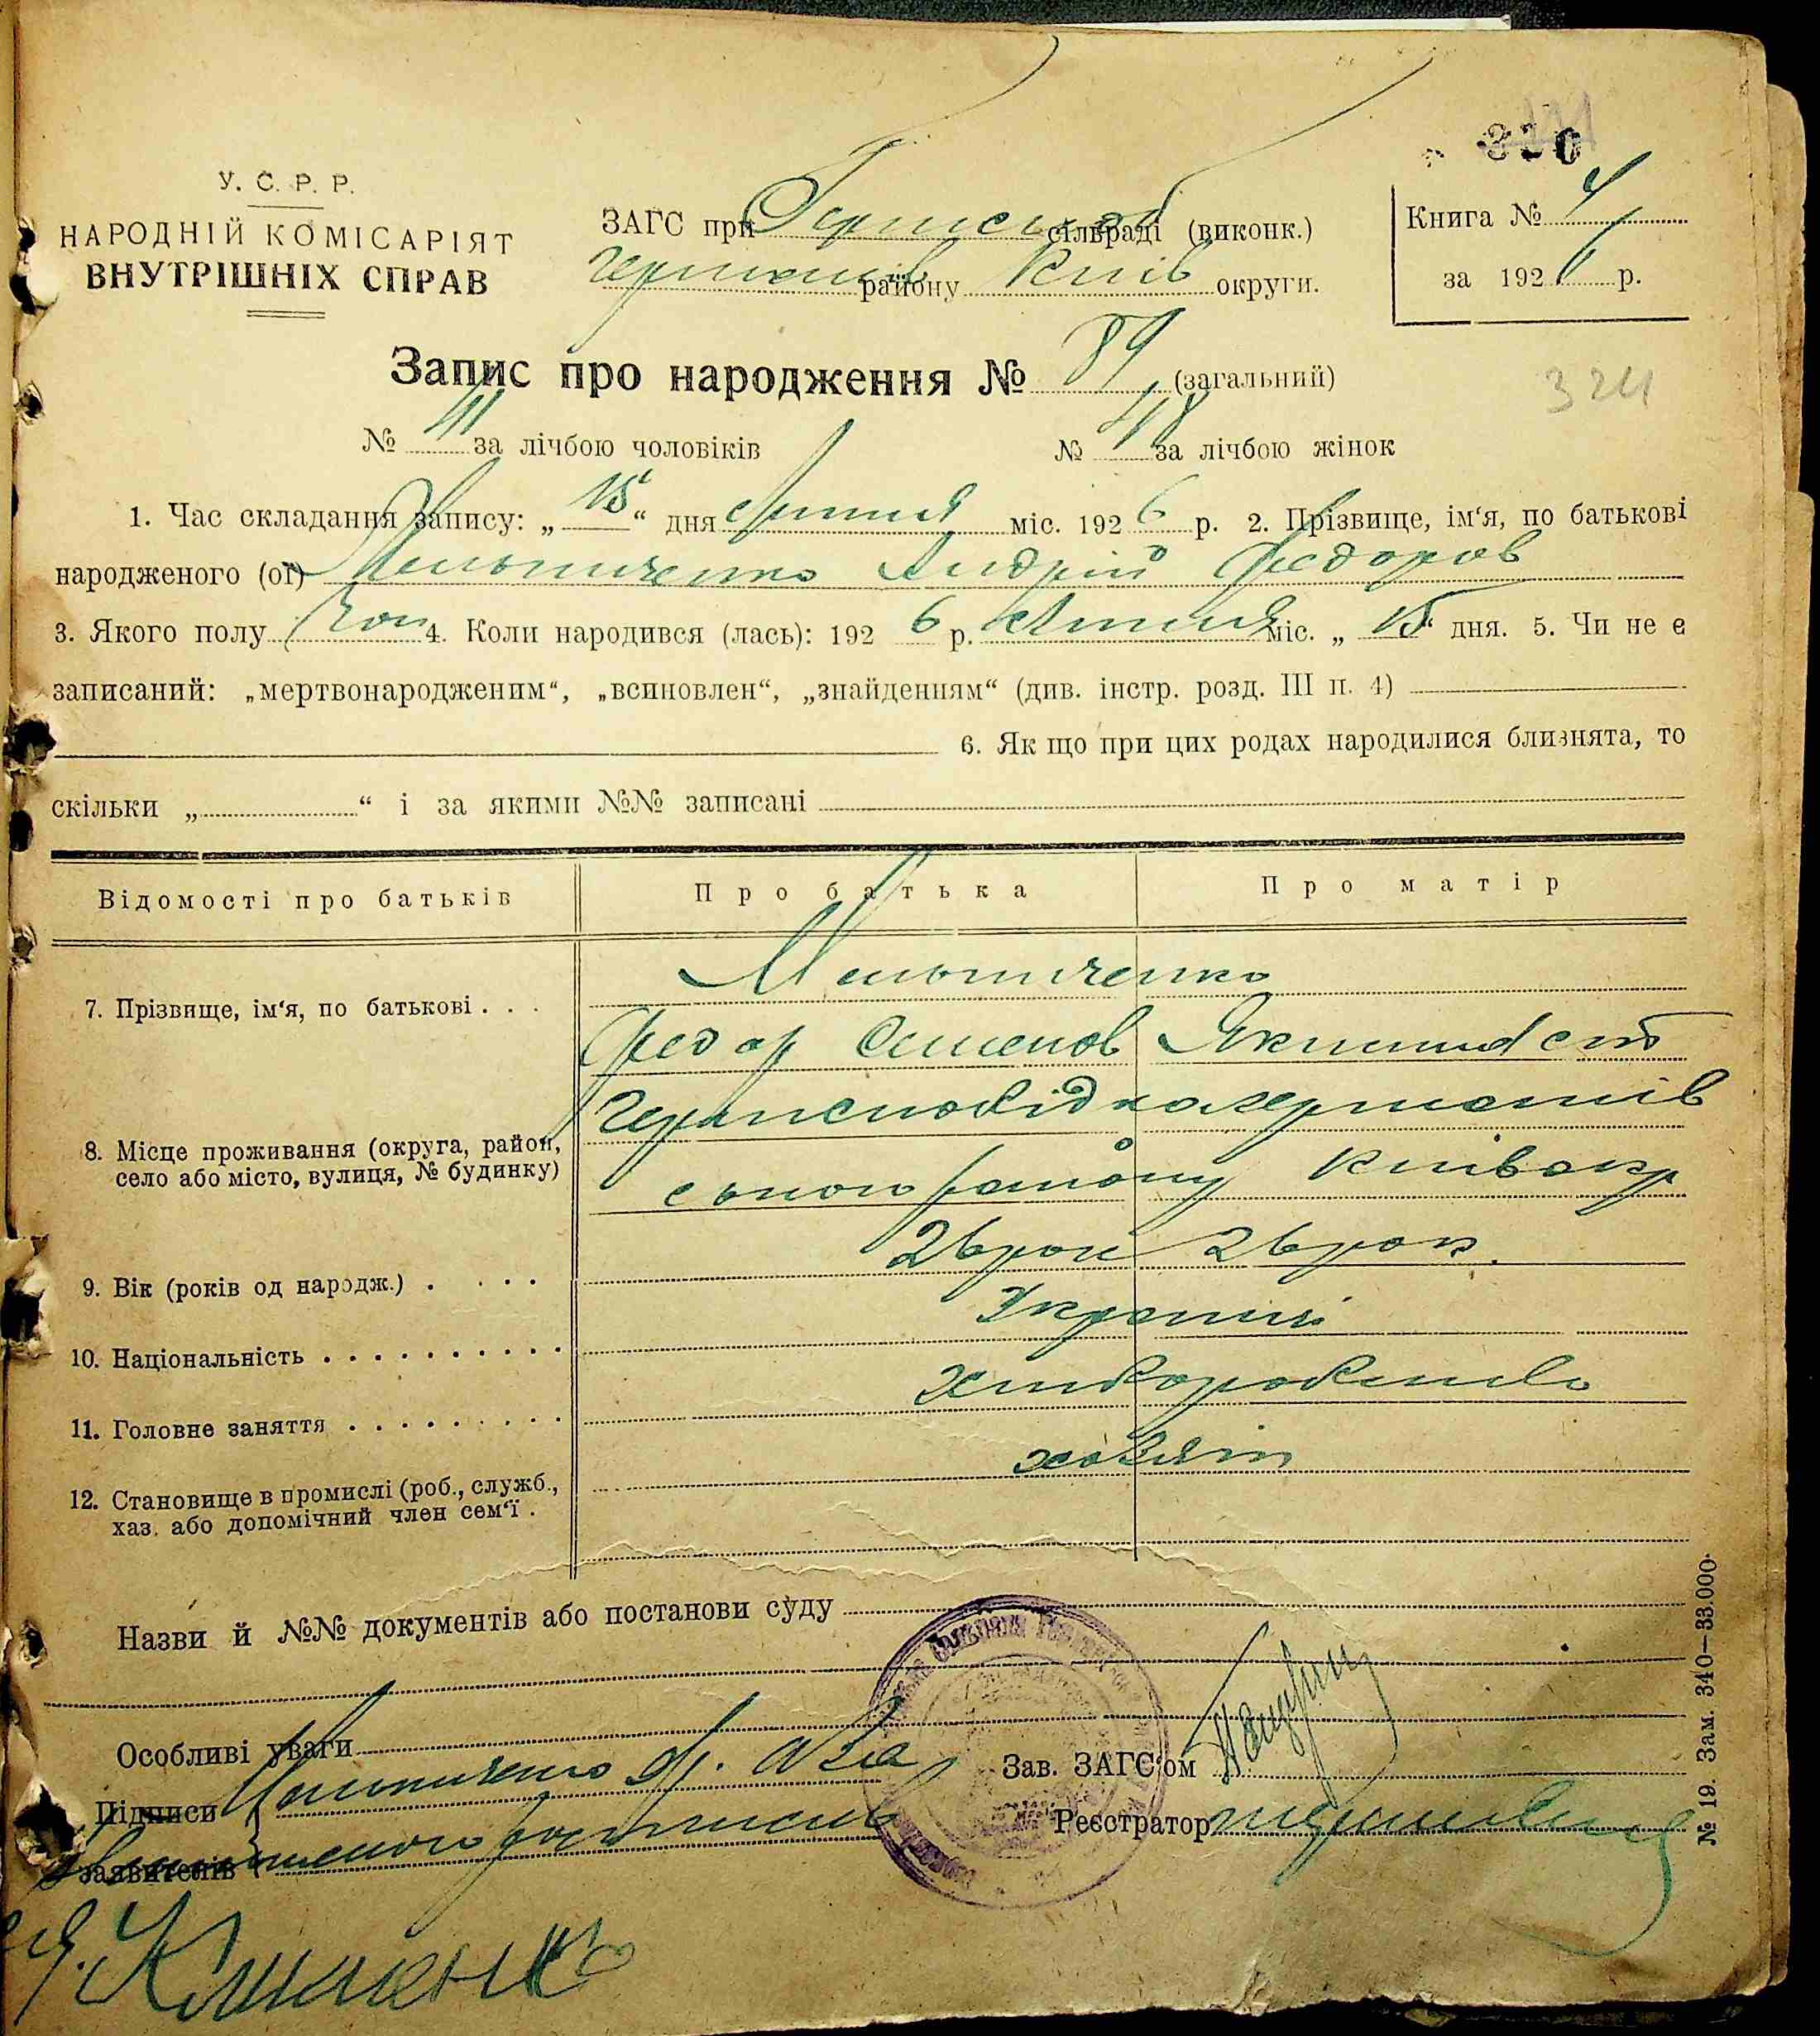 320
У. С. Р. Р.
НАРОДНІЙ КОМІСАРІЯТ
ВНУТРІШНІХ СПРАВ
ЗАГС при сільраді (виконк.)
району Київ округи.
Книга № 4
за 1926 р.
Запис про народження № 89 (загальний)
324
№ 41 за лічбою чоловіків № 48 за лічбою жінок
1. Час складання запису: „15“ дня Липня міс. 1926 р. 2. Прізвище, ім‘я, по батькові
народженого (ої) Мельниченко Андрій Федоров
3. Якого полу чол 4. Коли народився (лась): 1926 р. Липня міс. „15“ дня. 5. Чи не є
записаний: „мертвонародженим“, „всиновлен“, „знайденням“ (див. інстр. розд. III п. 4)
6. Як що при цих родах народилися близнята, то
скільки „ “ і за якими №№ записані
Відомості про батьків Про батька Про матір
7. Прізвище, ім‘я, по батькові . . . Мельниченко
Федор Семенов
8. Місце проживання (округа, район,
село або місто, вулиця, № будинку)
ського району Київ окр
9. Вік (років од народж.) . . . . 26 рок 26 рок.
10. Національність . . . . . . . . . . Українці
11. Головне заняття . . . . . . . . . хліборобство
12. Становище в промислі (роб., служб.,
хаз. або допомічний член сем‘ї . хазяїн
Назви й №№ документів або постанови суду
Особливі уваги
Підписи Мельниченко Зав. ЗАГС‘ом
заявителів Реєстратор
№ 19. Зам. 340—33.000.